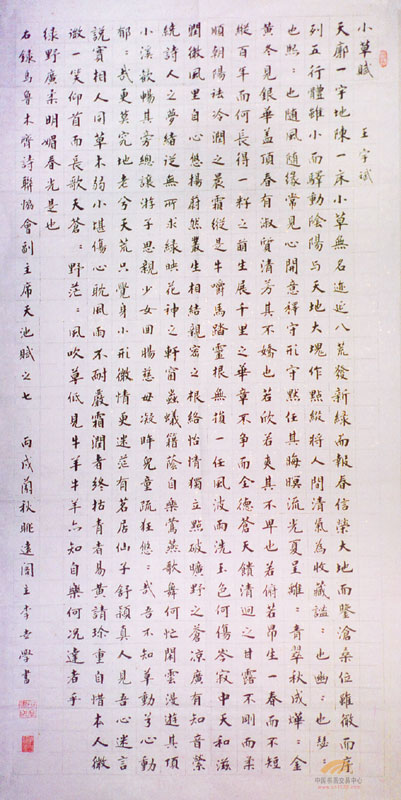 小草賦 王宇斌
天廓一字地陳一床小草無名迤延八荒發新綠而報春信榮大地而鑒滄桑位雖微而序
列五行體雖小而驛動陰陽与天地大塊作點綴將人間清氣為收藏謐:也幽:也瑟:
也然:也隨風隨緣常見心閒意釋守形守默任其晦暝流光夏呈雖:青翠秋成燁:金
黃冬見銀華蓋頂春有淑質清芳其不嬌也若欣若爽其不卑也若俯若昂生一春而不短
縱百年而何長得一籽之萌生展千里之華章不爭而全德蒼天饋清迴之甘露不剛而柔
順朝陽祛冷潤之晨霜縱是牛嚼馬踏靈根無損一任風波雨洗玉色何傷岑寂中天和滋
潤微風里自心悠揚蔚然叢生相結親密之根絡怡情獨立點破曠野之蒼凉廣有知音縈
統詩人之夢緒說無所求綠映花神之軒窗蟲蟻籍蔭自樂鶯燕歌舞何忙閑雲漫遊其頂
小溪歡暢其旁總讓游子思親少女回腸慈母凝眸兒童疏狂悠:哉吾不知草動羊心動
郁:哉更莫究地老兮天荒只覺身小形微情更迷茫有若居仙子舒穎真人見吾心迷言
說實相人同草木弱小堪傷心耽風雨不耐嚴霜潤者終枯青者易黃請珍重自惜本人微
微一笑仰首而長歌天蒼:野茫:風吹草低見牛羊牛羊亦知自樂何況達者乎
綠野廣柔明媚春光是也
右錄烏魯木齊詩聯協會副主席天池賦之七 丙戌蘭秋眺遠閣主李世學書
中国书画交易中心